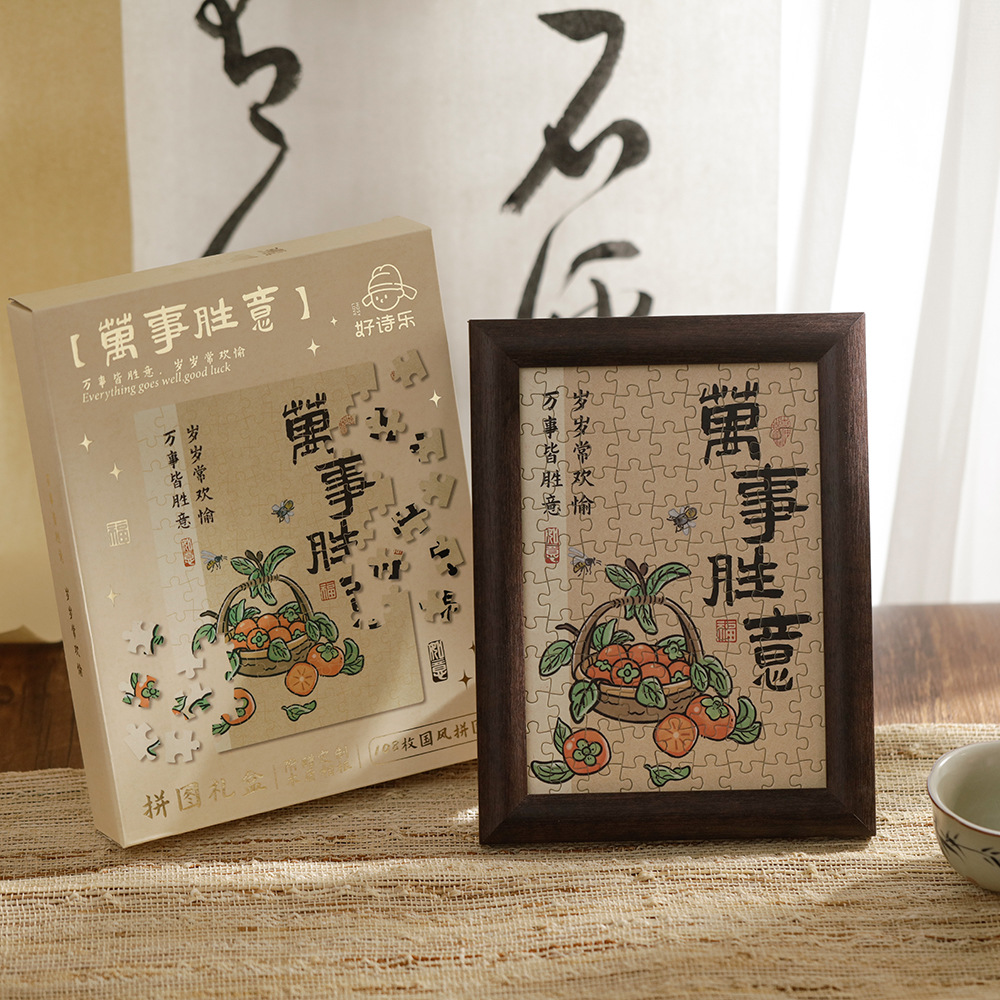 【萬事胜意】
万事皆胜意．岁岁常欢愉
Everything goes well.good luck
好诗乐
萬事胜
岁岁常欢愉
万事皆胜意
如意
福
福
岁岁常欢愉
拼图礼盒
108枚国风拼
萬事胜意
岁岁常欢愉
万事皆胜意
如意
福